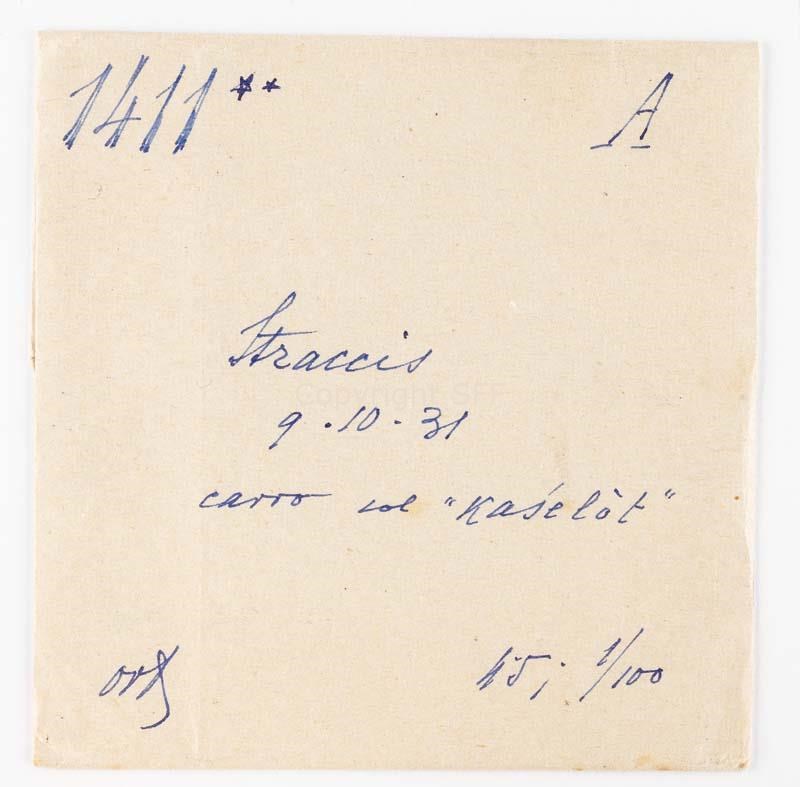 1411** A
Straccis
9.10.31
carro col "Kaśelòt"
Copyright SFF
ort
45; 1/100